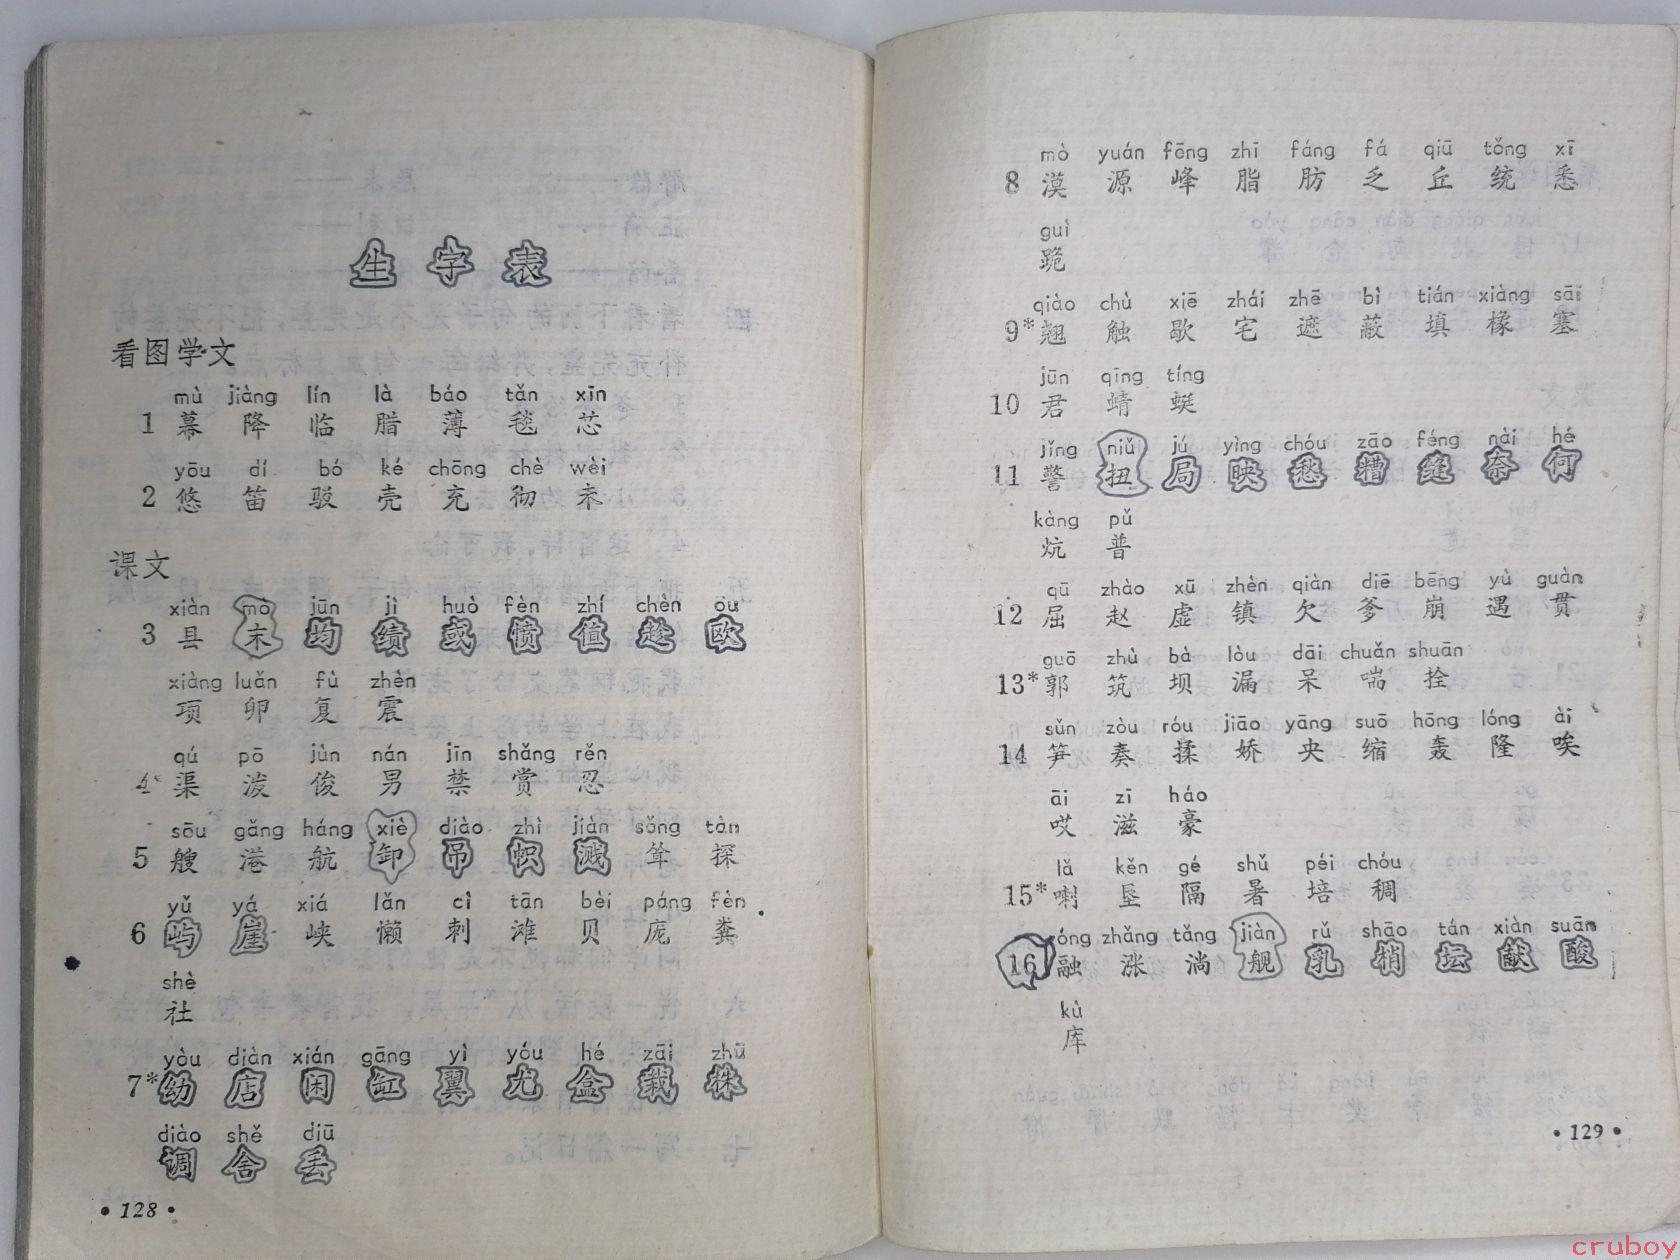 生字表
看图学文
mù jiàng lín là báo tǎn xīn
1 幕 降 临 腊 薄 毯 芯
yōu dí bó ké chōng chè wèi
2 悠 笛 驳 壳 充 彻 未
课文
xiàn mò jūn jì huò fèn zhí chèn ōu
3 县 末 均 绩 或 愤 值 趁 欧
xiàng luǎn fù zhèn
项 卵 复 震
qú pō jùn nán jīn shǎng rěn
4* 渠 泼 俊 男 禁 赏 忍
sōu gǎng háng xiè diào zhì jiàn sǒng tàn
5 艘 港 航 卸 吊 帜 溅 耸 探
yǔ yá xiá lǎn cì tān bèi páng fèn
6 屿 崖 峡 懒 刺 滩 贝 庞 粪
shè
社
yòu diàn xián gāng yì yóu hé zāi zhū
7* 幼 店 闲 缸 翼 尤 盒 栽 株
diào shě diū
调 舍 丢
• 128 •
mò yuán fēng zhī fáng fá qiū tǒng xī
8 漠 源 峰 脂 肪 乏 丘 统 悉
guì
跪
qiào chù xiē zhái zhē bì tián xiàng sāi
9* 翘 触 歇 宅 遮 蔽 填 橡 塞
jūn qīng tíng
10 君 蜻 蜓
jǐng niǔ jú yìng chóu zāo féng nài hé
11 警 扭 局 映 愁 糟 缝 奈 何
kàng pǔ
炕 普
qū zhào xū zhèn qiàn diē bēng yù guàn
12 屈 赵 虚 镇 欠 爹 崩 遇 贯
guō zhù bà lòu dāi chuǎn shuān
13* 郭 筑 坝 漏 呆 喘 拴
sǔn zòu róu jiāo yāng suō hōng lóng ài
14 笋 奏 揉 娇 央 缩 轰 隆 唉
āi zī háo
哎 滋 豪
lǎ kěn gé shǔ péi chóu
15* 喇 垦 隔 暑 培 稠
óng zhǎng tǎng jiàn rǔ shāo tán xiàn suān
16 融 涨 淌 舰 乳 梢 坛 献 酸
kù
库
• 129 •
cruboy